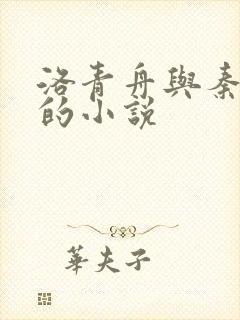 洛青舟與秦
的小說
華夫子